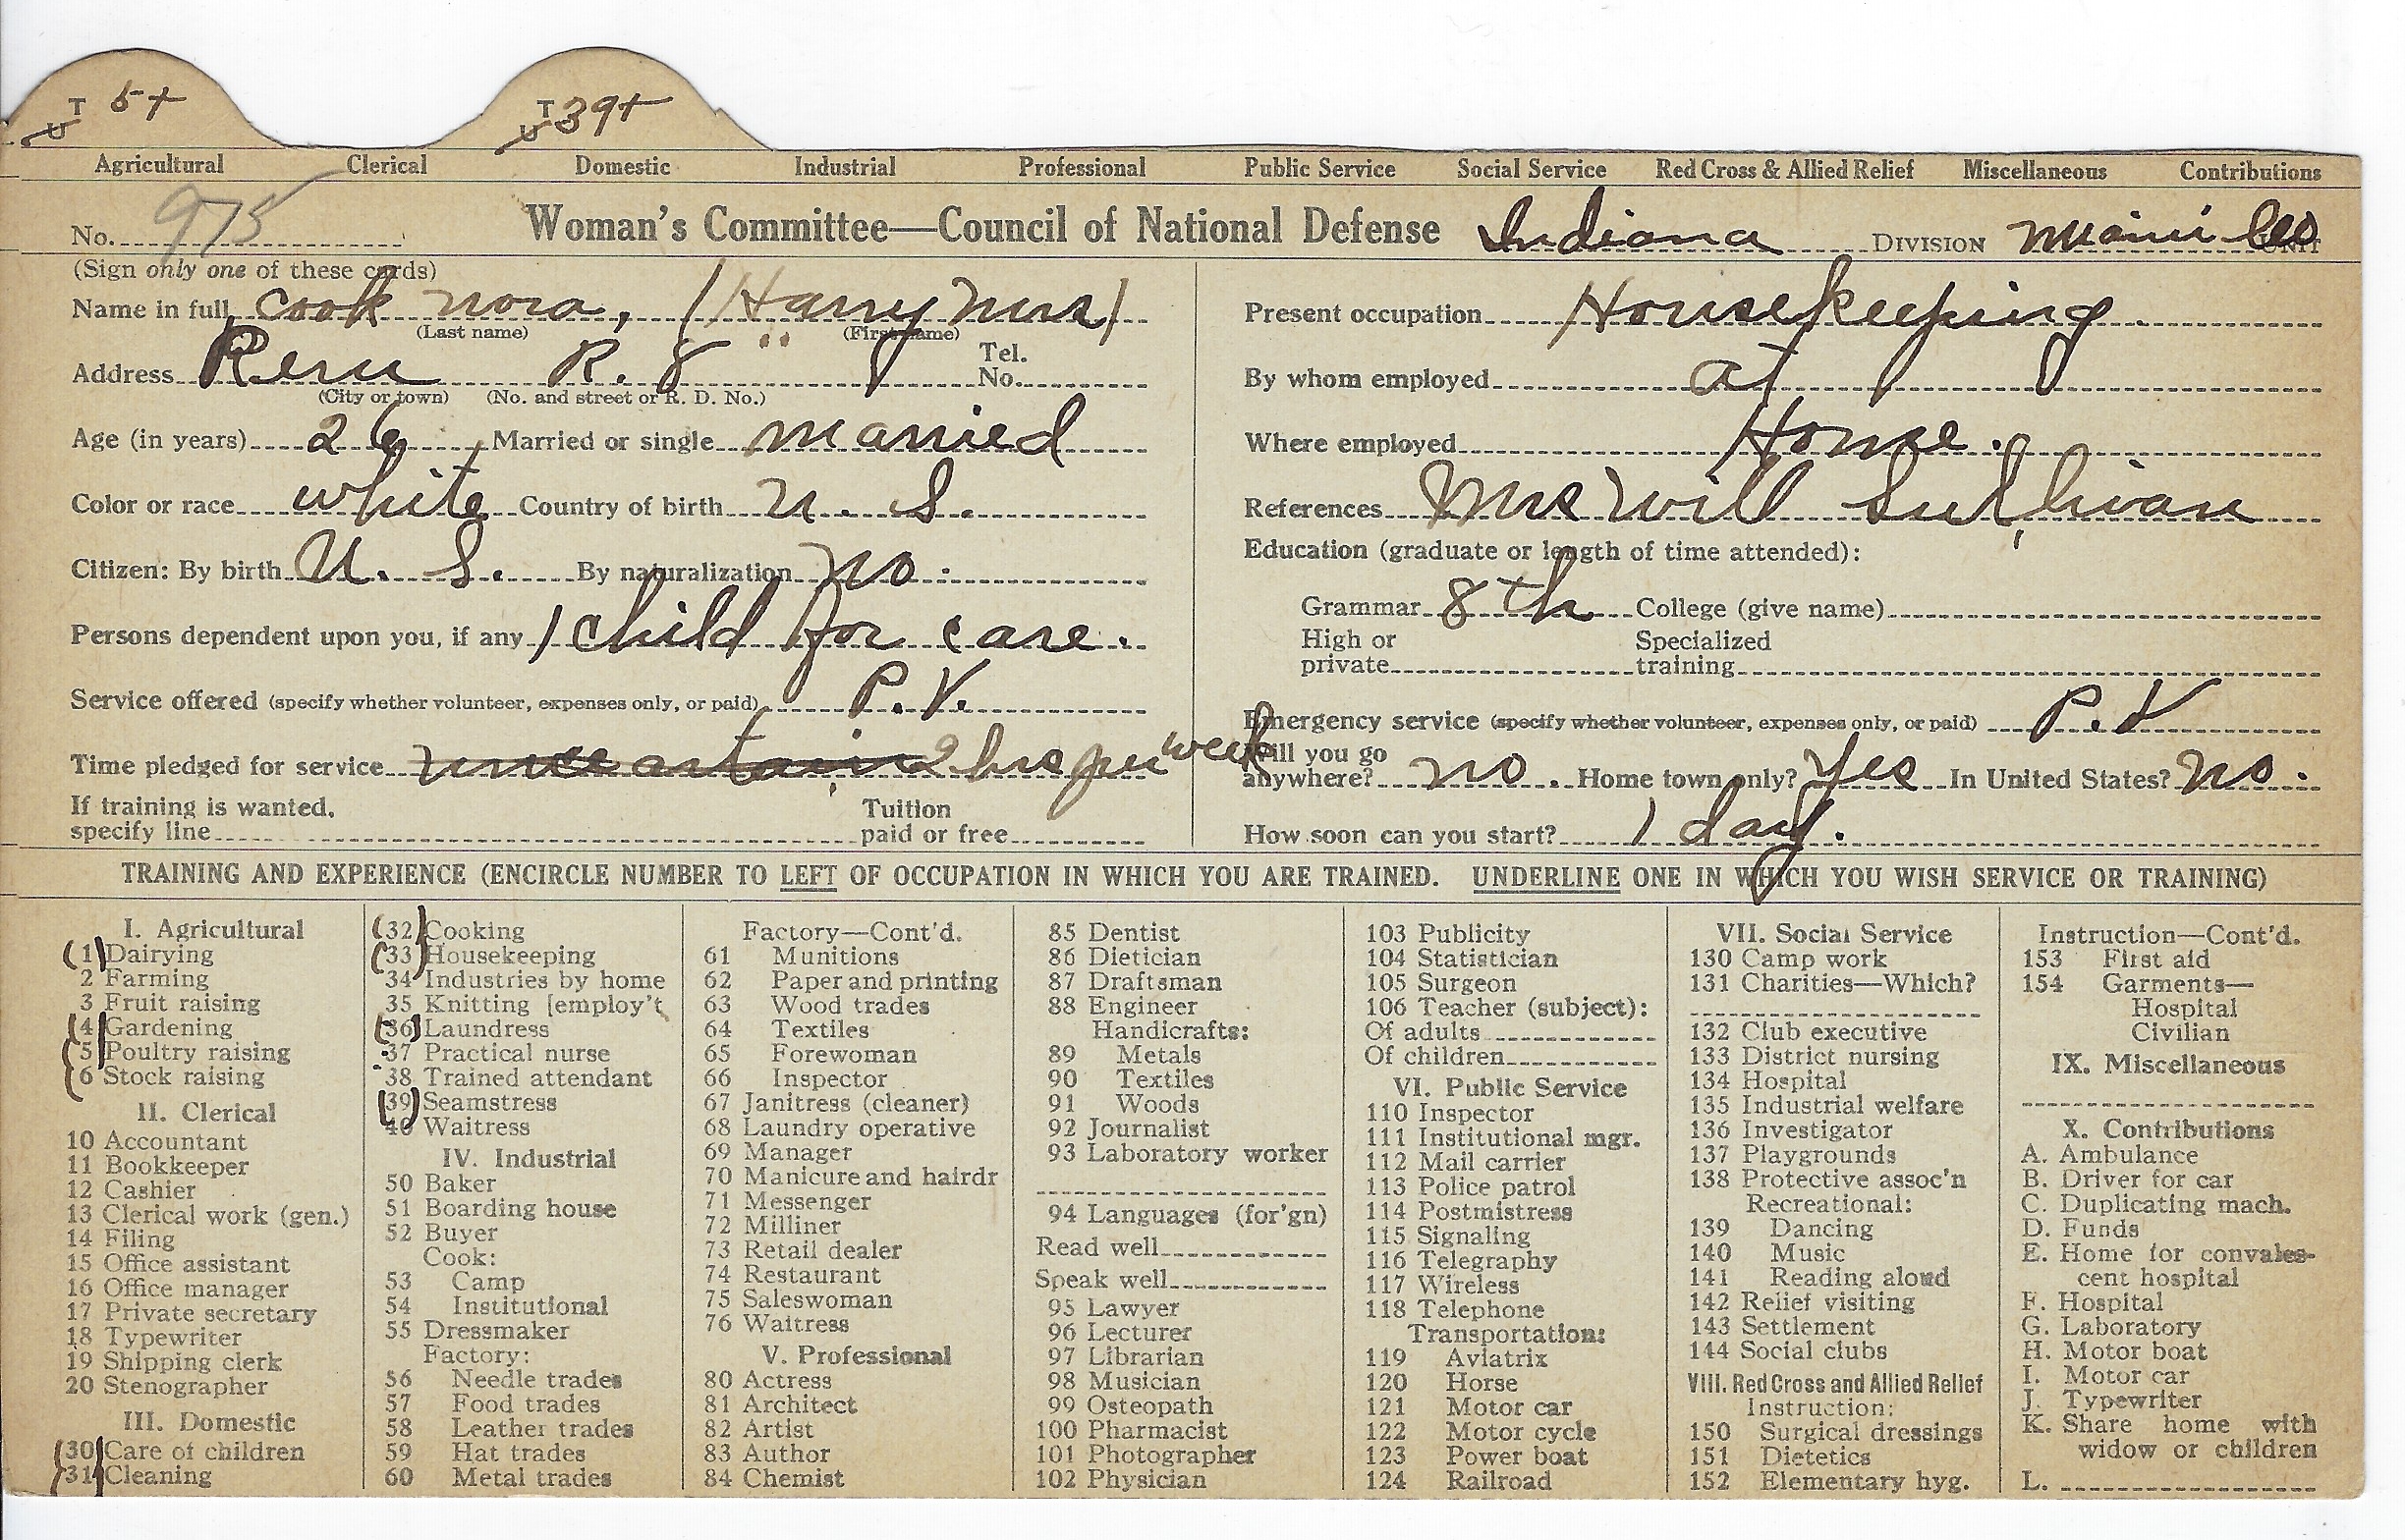 T 5+ T 39+
U U
Agricultural Clerical Domestic Industrial Professional Public Service Social Service Red Cross & Allied Relief Miscellaneous Contributions
No. 975 Woman's Committee—Council of National Defense Indiana DIVISION Miami Co UNIT
(Sign only one of these cards)
Name in full Cook Nora, (Harry Mrs)
(Last name) (First name)
Address Peru R. 8 Tel. No.
(City or town) (No. and street or R. D. No.)
Age (in years) 26 Married or single married
Color or race white Country of birth U. S.
Citizen: By birth U. S. By naturalization no.
Persons dependent upon you, if any 1 child for care.
Service offered (specify whether volunteer, expenses only, or paid) P. V.
Time pledged for service uncertain 2 hrs per week
If training is wanted, specify line Tuition paid or free
Present occupation Housekeeping
By whom employed at
Where employed Home.
References Mrs Will Sullivan
Education (graduate or length of time attended):
Grammar 8th College (give name)
High or private Specialized training
Emergency service (specify whether volunteer, expenses only, or paid) P. V
Will you go anywhere? no. Home town only? Yes In United States? no.
How soon can you start? 1 day.
TRAINING AND EXPERIENCE (ENCIRCLE NUMBER TO LEFT OF OCCUPATION IN WHICH YOU ARE TRAINED. UNDERLINE ONE IN WHICH YOU WISH SERVICE OR TRAINING)
I. Agricultural
(1) Dairying
2 Farming
3 Fruit raising
(4) Gardening
(5) Poultry raising
(6 Stock raising
II. Clerical
10 Accountant
11 Bookkeeper
12 Cashier
13 Clerical work (gen.)
14 Filing
15 Office assistant
16 Office manager
17 Private secretary
18 Typewriter
19 Shipping clerk
20 Stenographer
III. Domestic
(30) Care of children
(31) Cleaning
(32) Cooking
(33) Housekeeping
34 Industries by home
35 Knitting [employ't
(36) Laundress
37 Practical nurse
38 Trained attendant
(39) Seamstress
40 Waitress
IV. Industrial
50 Baker
51 Boarding house
52 Buyer
Cook:
53 Camp
54 Institutional
55 Dressmaker
Factory:
56 Needle trades
57 Food trades
58 Leather trades
59 Hat trades
60 Metal trades
Factory—Cont'd.
61 Munitions
62 Paper and printing
63 Wood trades
64 Textiles
65 Forewoman
66 Inspector
67 Janitress (cleaner)
68 Laundry operative
69 Manager
70 Manicure and hairdr
71 Messenger
72 Milliner
73 Retail dealer
74 Restaurant
75 Saleswoman
76 Waitress
V. Professional
80 Actress
81 Architect
82 Artist
83 Author
84 Chemist
85 Dentist
86 Dietician
87 Draftsman
88 Engineer
Handicrafts:
89 Metals
90 Textiles
91 Woods
92 Journalist
93 Laboratory worker
94 Languages (for'gn)
Read well
Speak well
95 Lawyer
96 Lecturer
97 Librarian
98 Musician
99 Osteopath
100 Pharmacist
101 Photographer
102 Physician
103 Publicity
104 Statistician
105 Surgeon
106 Teacher (subject):
Of adults
Of children
VI. Public Service
110 Inspector
111 Institutional mgr.
112 Mail carrier
113 Police patrol
114 Postmistress
115 Signaling
116 Telegraphy
117 Wireless
118 Telephone
Transportation:
119 Aviatrix
120 Horse
121 Motor car
122 Motor cycle
123 Power boat
124 Railroad
VII. Social Service
130 Camp work
131 Charities—Which?
132 Club executive
133 District nursing
134 Hospital
135 Industrial welfare
136 Investigator
137 Playgrounds
138 Protective assoc'n
Recreational:
139 Dancing
140 Music
141 Reading aloud
142 Relief visiting
143 Settlement
144 Social clubs
VIII. Red Cross and Allied Relief
Instruction:
150 Surgical dressings
151 Dietetics
152 Elementary hyg.
Instruction—Cont'd.
153 First aid
154 Garments—
Hospital
Civilian
IX. Miscellaneous
X. Contributions
A. Ambulance
B. Driver for car
C. Duplicating mach.
D. Funds
E. Home for convales-
cent hospital
F. Hospital
G. Laboratory
H. Motor boat
I. Motor car
J. Typewriter
K. Share home with
widow or children
L.